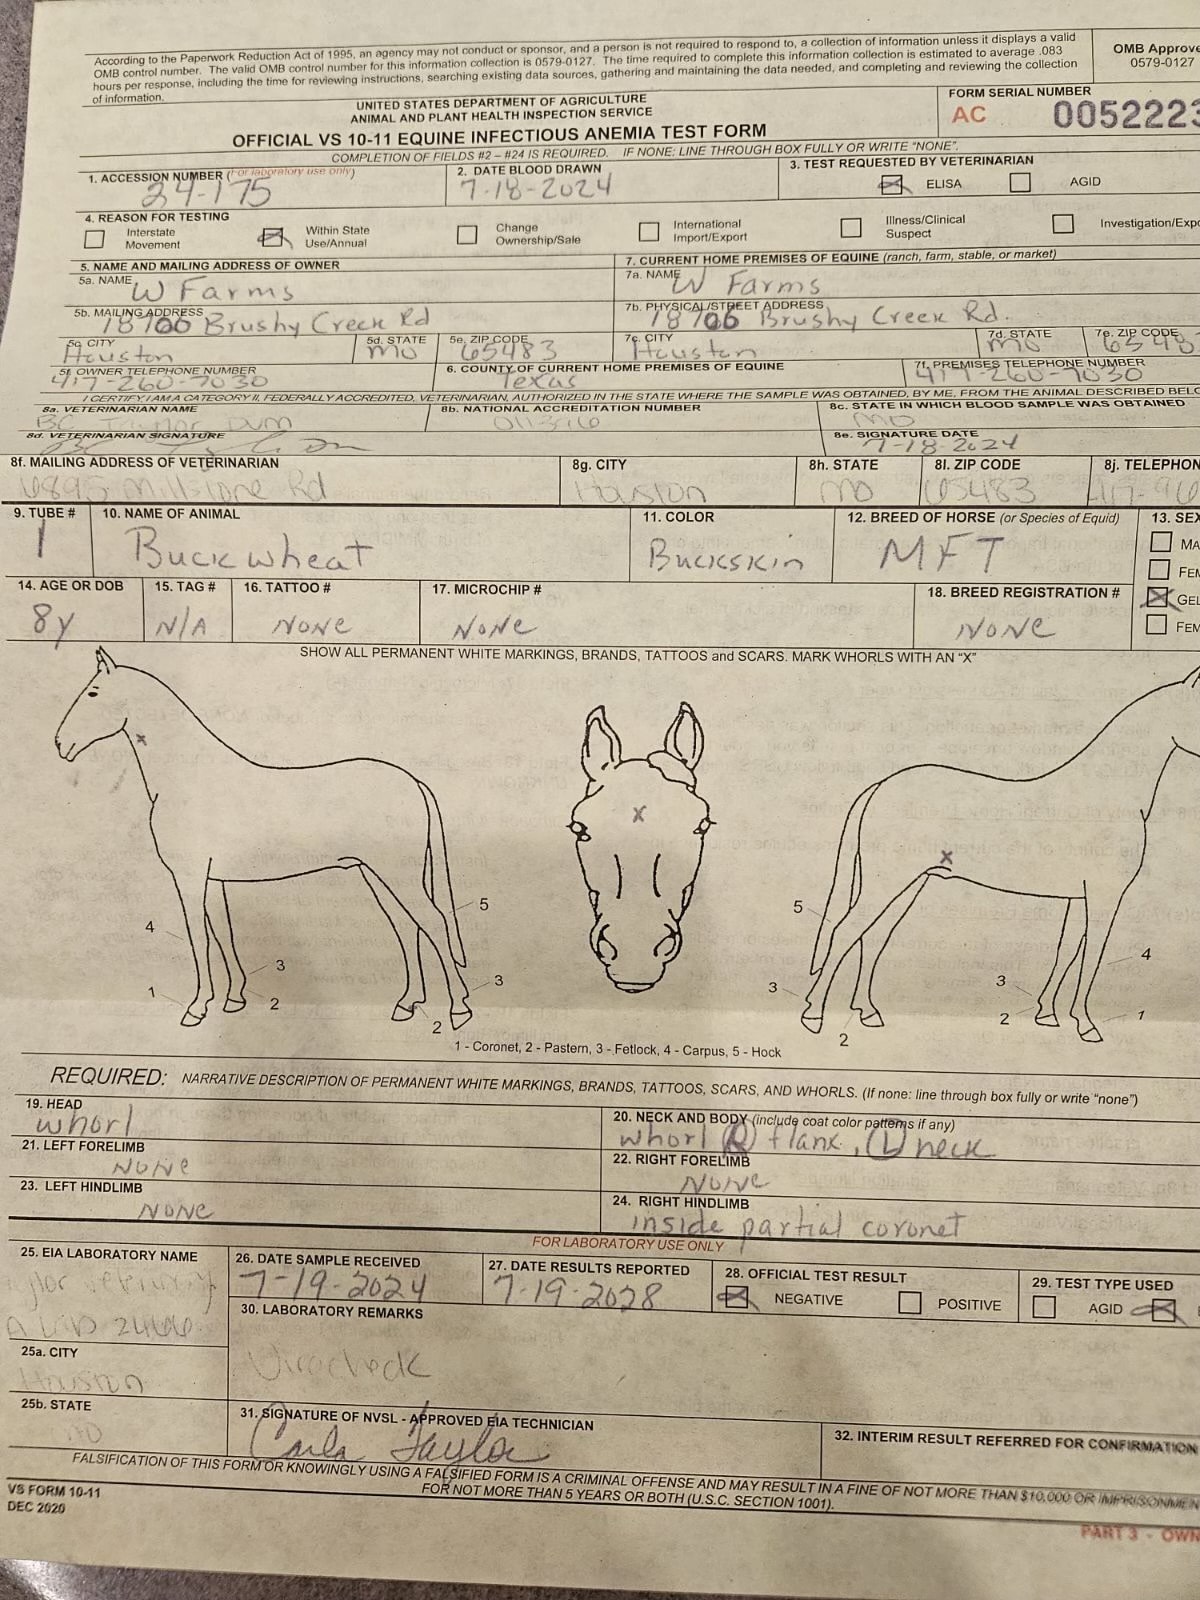 According to the Paperwork Reduction Act of 1995, an agency may not conduct or sponsor, and a person is not required to respond to, a collection of information unless it displays a valid
OMB control number. The valid OMB control number for this information collection is 0579-0127. The time required to complete this information collection is estimated to average .083
hours per response, including the time for reviewing instructions, searching existing data sources, gathering and maintaining the data needed, and completing and reviewing the collection
of information.
OMB Approve
0579-0127
UNITED STATES DEPARTMENT OF AGRICULTURE
ANIMAL AND PLANT HEALTH INSPECTION SERVICE
OFFICIAL VS 10-11 EQUINE INFECTIOUS ANEMIA TEST FORM
FORM SERIAL NUMBER
AC 0052223
COMPLETION OF FIELDS #2 – #24 IS REQUIRED. IF NONE: LINE THROUGH BOX FULLY OR WRITE "NONE".
1. ACCESSION NUMBER (For laboratory use only)
24-175
2. DATE BLOOD DRAWN
7-18-2024
3. TEST REQUESTED BY VETERINARIAN
ELISA AGID
4. REASON FOR TESTING
Interstate Movement
Within State Use/Annual
Change Ownership/Sale
International Import/Export
Illness/Clinical Suspect
Investigation/Expo
5. NAME AND MAILING ADDRESS OF OWNER
7. CURRENT HOME PREMISES OF EQUINE (ranch, farm, stable, or market)
5a. NAME W Farms
7a. NAME W Farms
5b. MAILING ADDRESS
18706 Brushy Creek Rd
7b. PHYSICAL/STREET ADDRESS
18706 Brushy Creek Rd.
5c. CITY Houston
5d. STATE MO
5e. ZIP CODE 65483
7c. CITY Houston
7d. STATE MO
7e. ZIP CODE 6548
5f. OWNER TELEPHONE NUMBER
417-260-7030
6. COUNTY OF CURRENT HOME PREMISES OF EQUINE
Texas
7f. PREMISES TELEPHONE NUMBER
417-260-7030
I CERTIFY I AM A CATEGORY II, FEDERALLY ACCREDITED, VETERINARIAN, AUTHORIZED IN THE STATE WHERE THE SAMPLE WAS OBTAINED, BY ME, FROM THE ANIMAL DESCRIBED BELO
8a. VETERINARIAN NAME
8b. NATIONAL ACCREDITATION NUMBER
8c. STATE IN WHICH BLOOD SAMPLE WAS OBTAINED
MO
8d. VETERINARIAN SIGNATURE
8e. SIGNATURE DATE
7-18-2024
8f. MAILING ADDRESS OF VETERINARIAN
6895 Millstone Rd
8g. CITY
Houston
8h. STATE
MO
8I. ZIP CODE
65483
8j. TELEPHON
417-96
9. TUBE #
1
10. NAME OF ANIMAL
Buckwheat
11. COLOR
Buckskin
12. BREED OF HORSE (or Species of Equid)
MFT
13. SEX
MA
FEM
GEL
FEM
14. AGE OR DOB
8y
15. TAG #
N/A
16. TATTOO #
NONE
17. MICROCHIP #
NONE
18. BREED REGISTRATION #
NONE
SHOW ALL PERMANENT WHITE MARKINGS, BRANDS, TATTOOS and SCARS. MARK WHORLS WITH AN "X"
x
x
x
5
5
4
4
3
3
3
3
1
2
2
2
1
2
1 - Coronet, 2 - Pastern, 3 - Fetlock, 4 - Carpus, 5 - Hock
REQUIRED: NARRATIVE DESCRIPTION OF PERMANENT WHITE MARKINGS, BRANDS, TATTOOS, SCARS, AND WHORLS. (If none: line through box fully or write "none")
19. HEAD
whorl
20. NECK AND BODY (include coat color patterns if any)
whorl R flank, L neck
21. LEFT FORELIMB
NONE
22. RIGHT FORELIMB
NONE
23. LEFT HINDLIMB
NONE
24. RIGHT HINDLIMB
inside partial coronet
FOR LABORATORY USE ONLY
25. EIA LABORATORY NAME
26. DATE SAMPLE RECEIVED
7-19-2024
27. DATE RESULTS REPORTED
7-19-2028
28. OFFICIAL TEST RESULT
NEGATIVE POSITIVE
29. TEST TYPE USED
AGID E
30. LABORATORY REMARKS
Virocheck
25a. CITY
Houston
25b. STATE
31. SIGNATURE OF NVSL - APPROVED EIA TECHNICIAN
Carla Taylor
32. INTERIM RESULT REFERRED FOR CONFIRMATION
FALSIFICATION OF THIS FORM OR KNOWINGLY USING A FALSIFIED FORM IS A CRIMINAL OFFENSE AND MAY RESULT IN A FINE OF NOT MORE THAN $10,000 OR IMPRISONMEN
FOR NOT MORE THAN 5 YEARS OR BOTH (U.S.C. SECTION 1001).
VS FORM 10-11
DEC 2020
PART 3 - OWN